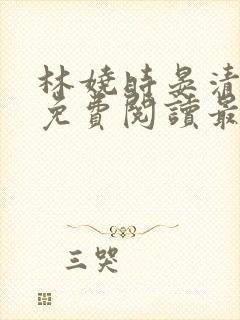 林嬈時晏清
免費閱讀最
三哭